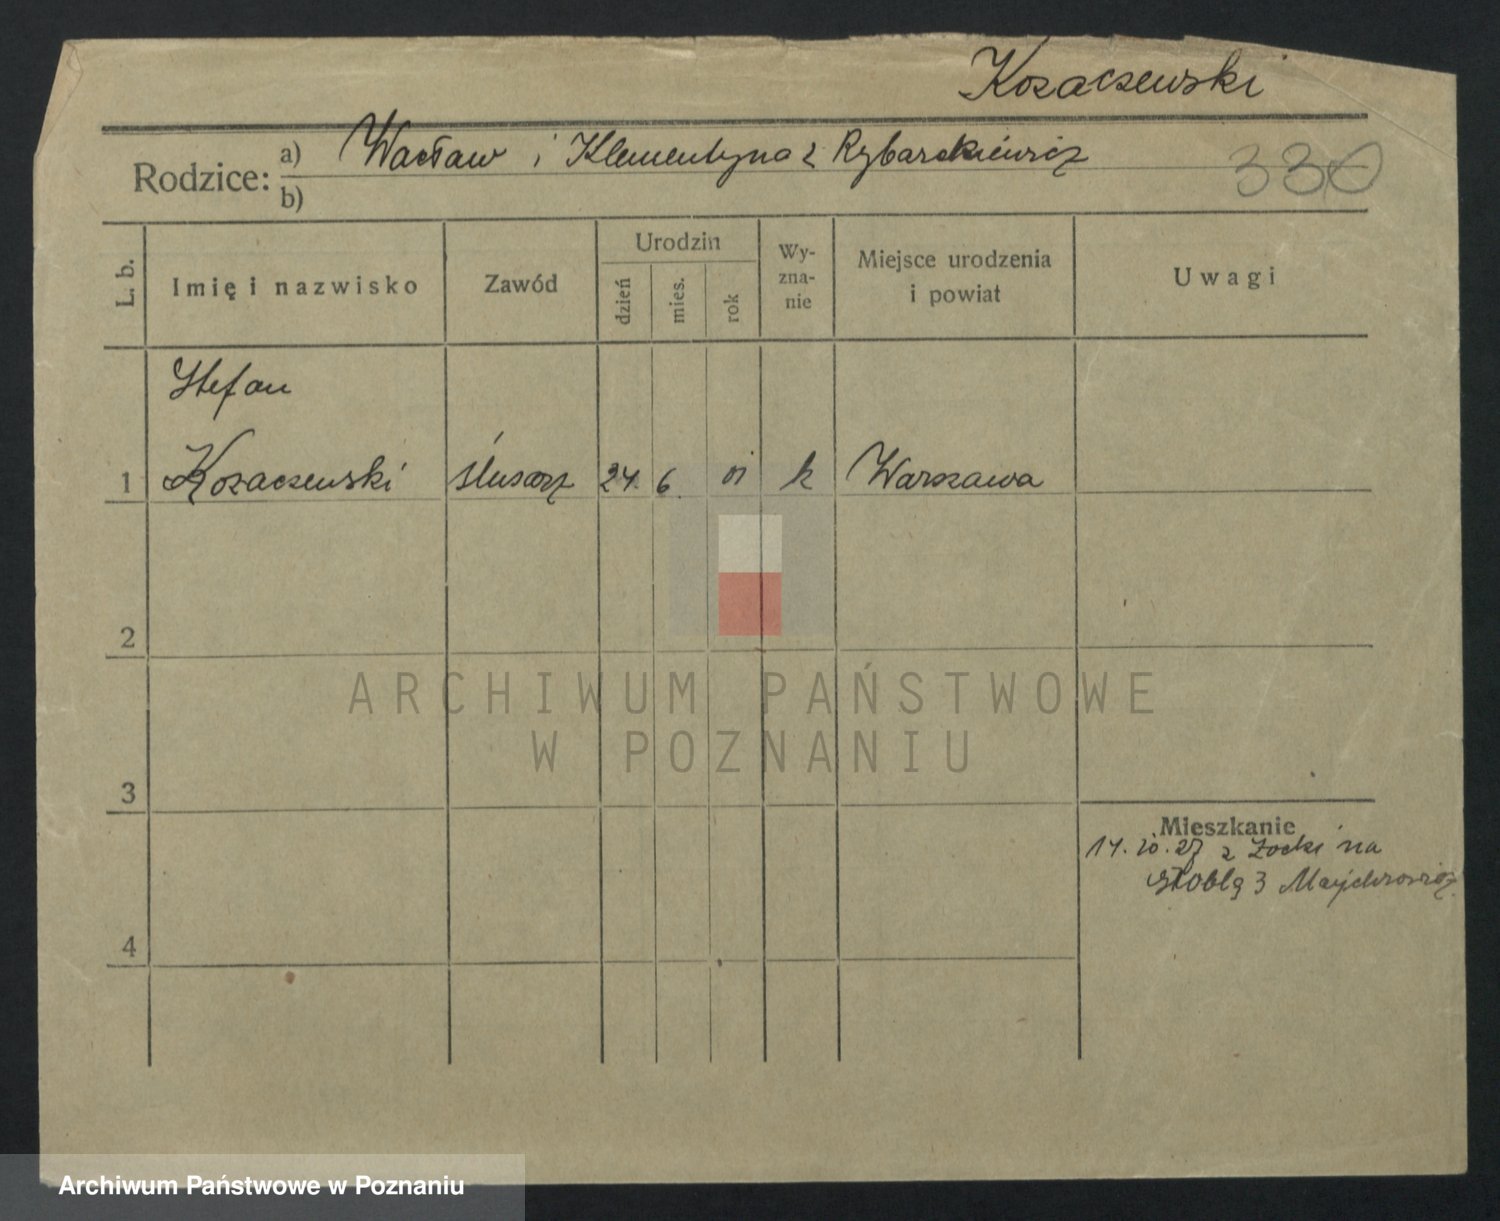 Kozaczewski
Rodzice: a) Wacław i Klementyna z Rybarckiewicz
b)
330
L. b.
Imię i nazwisko
Zawód
Urodzin
dzień
mies.
rok
Wy-
zna-
nie
Miejsce urodzenia
i powiat
Uwagi
Stefan
1 Kozaczewski ślusarz 24. 6. 01 k Warszawa
2
3
4
Mieszkanie
14. 10. 27 z na
3
ARCHIWUM PAŃSTWOWE
W POZNANIU
Archiwum Państwowe w Poznaniu